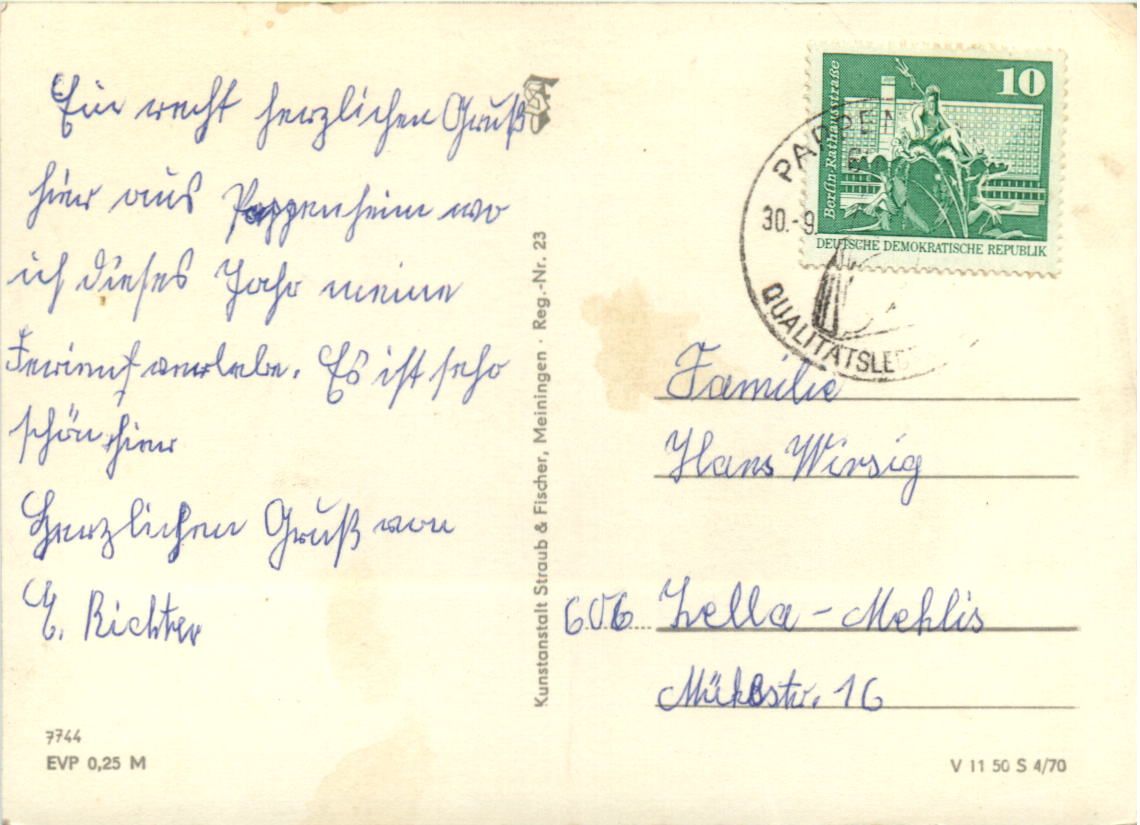 Ein recht herzlichen Gruß
hier aus Pappenheim wo
ich dieses Jahr meine
Ferien verlebe. Es ist sehr
schön hier
Herzlichen Gruß von
E. Richter
7744
EVP 0,25 M
Kunstanstalt Straub & Fischer, Meiningen · Reg.-Nr. 23
10
Berlin-Rathausstraße
DEUTSCHE DEMOKRATISCHE REPUBLIK
30.-9.
Familie
Hans Wirsig
606 Zella-Mehlis
16
V 11 50 S 4/70